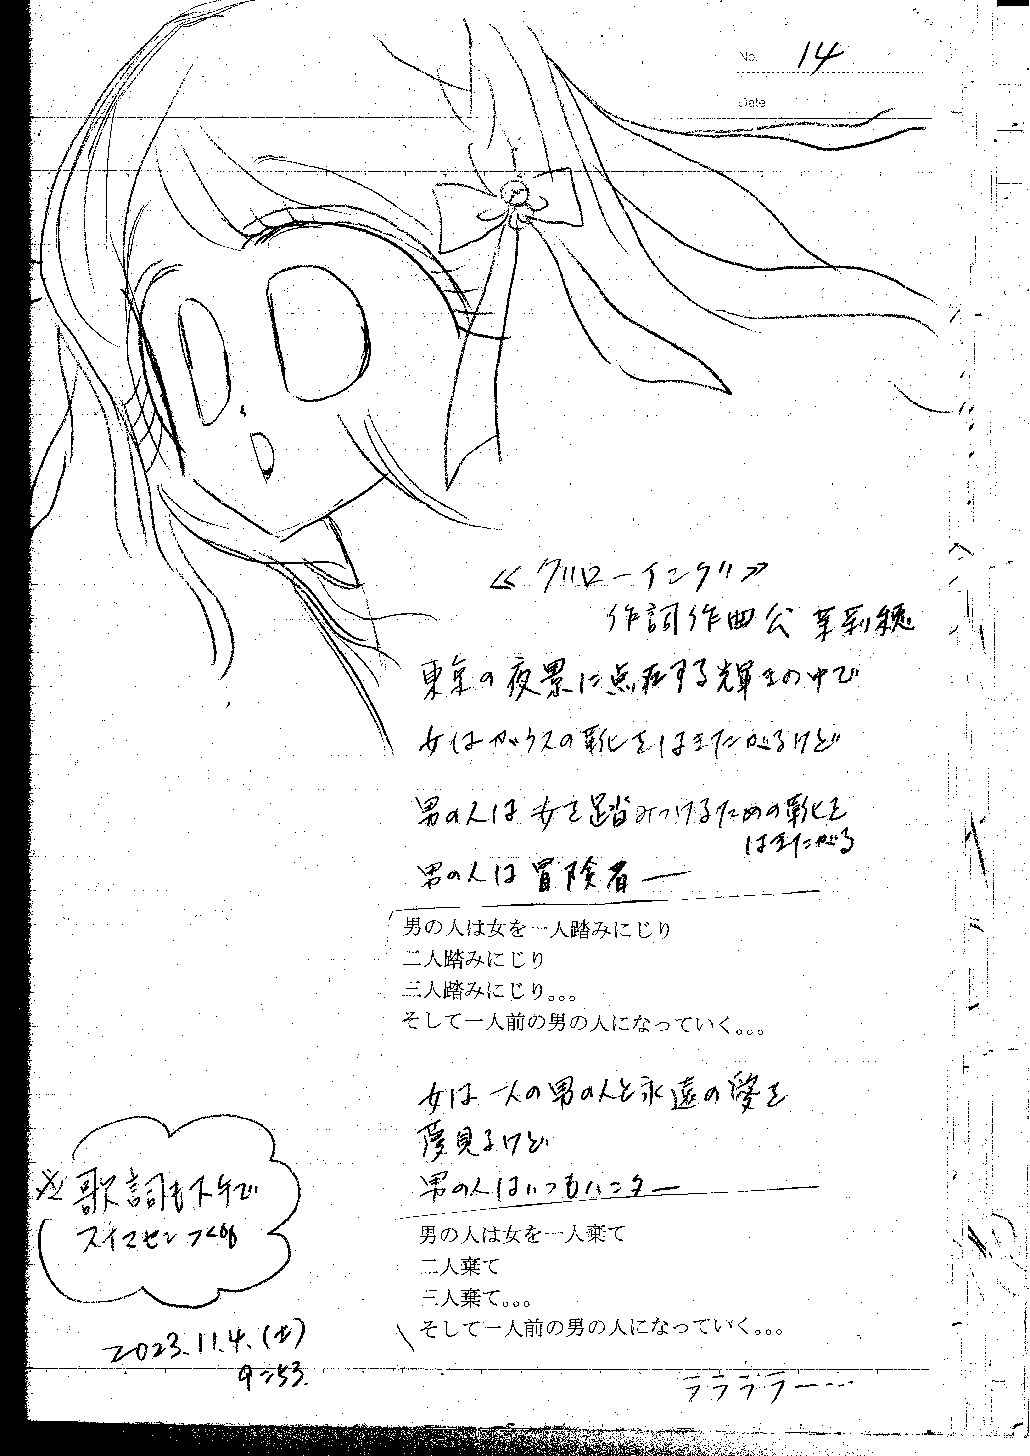 No. 14
Date
≪グローイング≫
作詞作曲公 茉莉穂
東京の夜景に点在する輝きの中で
女はガラスの靴をはきたがるけど
男の人は女を踏みつけるための靴を
はきたがる
男の人は冒険者ー
男の人は女を一人踏みにじり
二人踏みにじり
三人踏みにじり。。。
そして一人前の男の人になっていく。。。
女は一人の男の人と永遠の愛を
夢見るけど
男の人はいつもハンター
男の人は女を一人棄て
二人棄て
三人棄て。。。
そして一人前の男の人になっていく。。。
ララララー…
※歌詞も下手で
スイマセン
2023.11.4.(土)
9:53.